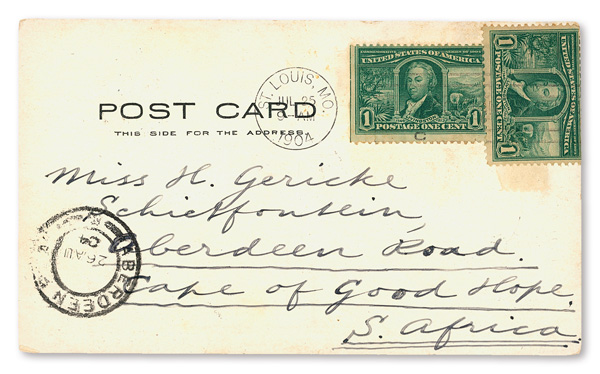 UNITED STATES OF AMERICA
1 1
POSTAGE ONE CENT
UNITED STATES OF AMERICA
1 1
POSTAGE ONE CENT
ST. LOUIS, MO.
JUL 25
AM
1904
POST CARD
THIS SIDE FOR THE ADDRESS.
Miss H. Gericke
Schietfontein
Aberdeen Road.
Cape of Good Hope.
S. Africa.
ABERDEEN
26 AU
04